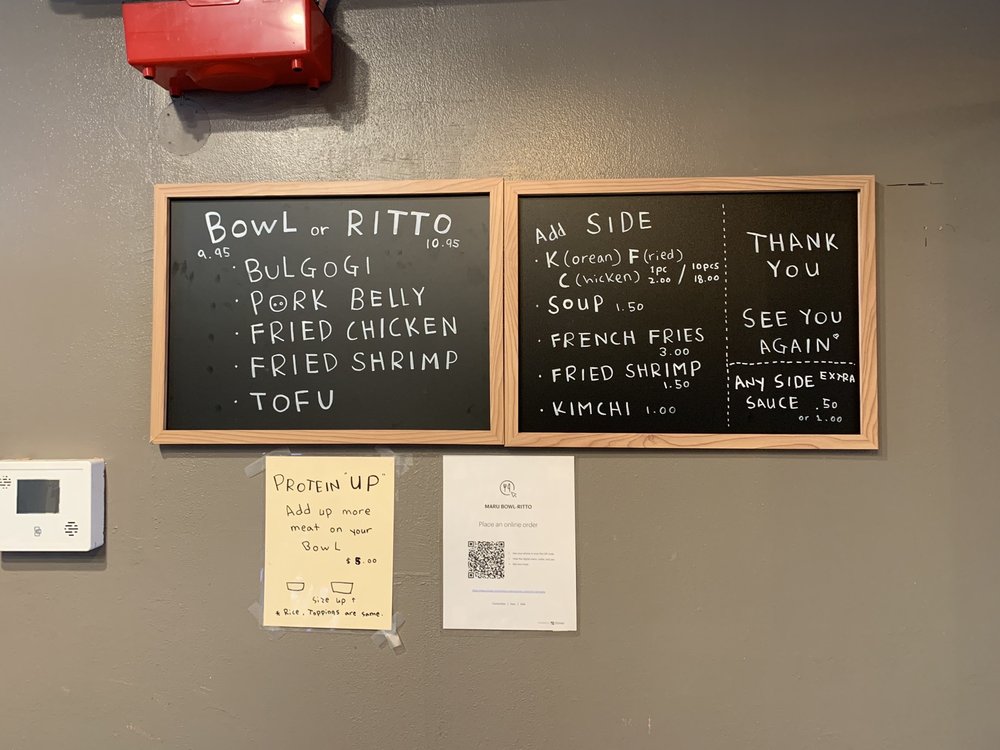 BOWL or RITTO
9.95 10.95
· BULGOGI
· PORK BELLY
· FRIED CHICKEN
· FRIED SHRIMP
· TOFU
Add SIDE
· K(orean) F(ried)
C(hicken) 1pc 2.00 / 10pcs 18.00
· SOUP 1.50
· FRENCH FRIES
3.00
· FRIED SHRIMP
1.50
· KIMCHI 1.00
THANK
YOU
SEE YOU
AGAIN♡
ANY SIDE EXTRA
SAUCE .50
or 1.00
PROTEIN "UP"
Add up more
meat on your
BOWL
$5.00
Size up ↑
* Rice, Toppings are same.
MARU BOWL-RITTO
Place an online order